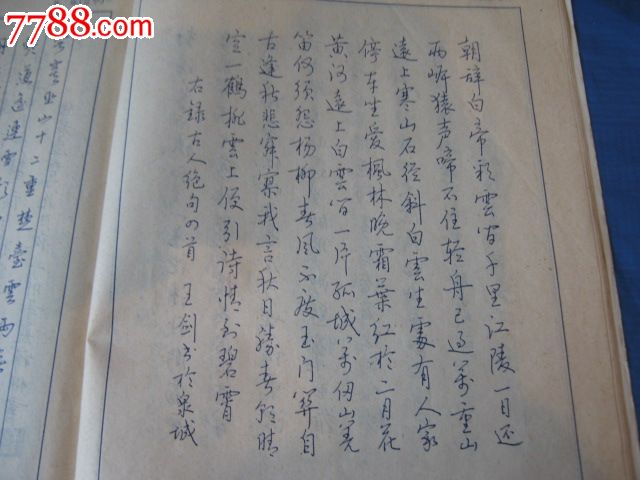 7788.com
朝辞白帝彩雲间千里江陵一日还
两岸猿声啼不住轻舟已过万重山
遠上寒山石径斜白雲生處有人家
停车坐爱枫林晚霜葉红於二月花
黄河遠上白雲间一片孤城万仞山羌
笛何须怨杨柳春风不度玉门関自
古逢秋悲寂寥我言秋日勝春朝晴
空一鹤排雲上便引诗情到碧霄
右録古人绝句四首 王剑书於泉城
山十二重楚臺雲雨